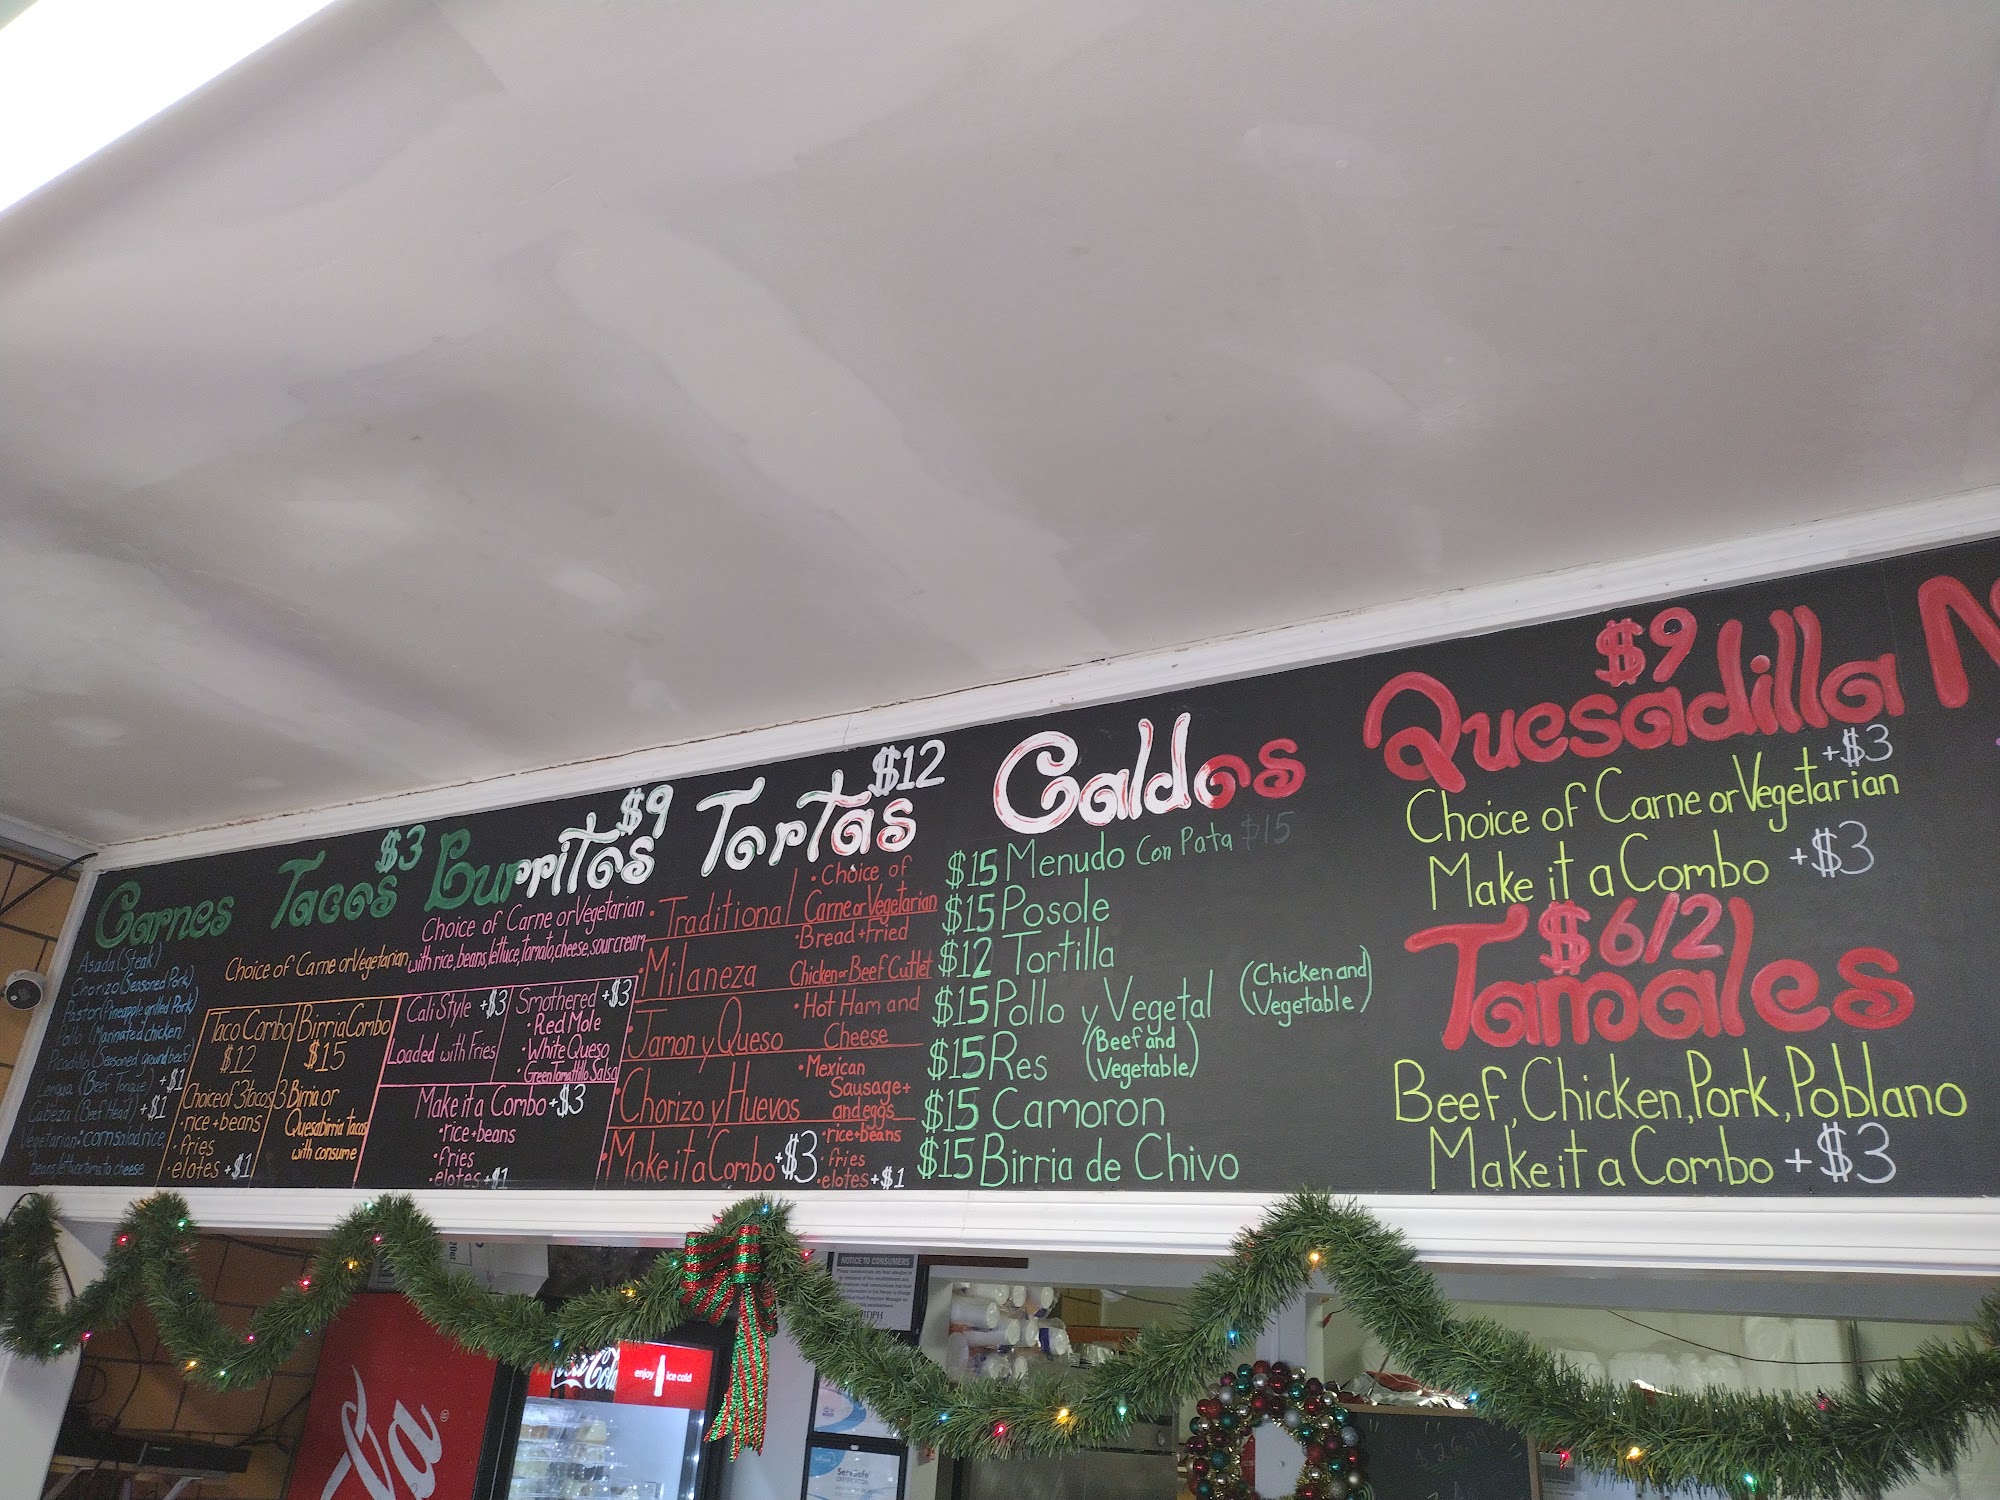 Carnes
Asada (Steak)
Chorizo (Seasoned Pork)
Pastor (Pineapple grilled Pork)
Pollo (Marinated chicken)
Picadillo (Seasoned ground beef)
Lengua (Beef Tongue) +$1
Cabeza (Beef Head) +$1
Vegetarian: corn salad rice
beans lettuce tomato cheese
$3
Tacos
Choice of Carne or Vegetarian
Taco Combo
$12
Choice of 3 tacos
•rice+beans
•fries
•elotes +$1
Birria Combo
$15
3 Birria or
Quesabirria tacos
with consume
$9
Burritos
Choice of Carne or Vegetarian
with rice, beans, lettuce, tomato, cheese, sour cream
Cali Style +$3
Loaded with Fries
Smothered +$3
•Red Mole
•White Queso
•Green Tomatillo Salsa
Make it a Combo +$3
•rice+beans
•fries
•elotes +$1
$12
Tortas
•Traditional
•Choice of
Carne or Vegetarian
•Milaneza
•Bread+Fried
Chicken or Beef Cuttlet
•Jamon y Queso
•Hot Ham and
Cheese
•Chorizo y Huevos
•Mexican
Sausage+
and eggs
•Make it a Combo +$3
•rice+beans
•fries
•elotes +$1
Caldos
$15 Menudo Con Pata $15
$15 Posole
$12 Tortilla
$15 Pollo y Vegetal (Chicken and Vegetable)
$15 Res (Beef and Vegetable)
$15 Camoron
$15 Birria de Chivo
$9
Quesadilla
+$3
Choice of Carne or Vegetarian
Make it a Combo +$3
$6/2
Tamales
Beef, Chicken, Pork, Poblano
Make it a Combo +$3
N
NOTICE TO CONSUMERS
Coca-Cola
enjoy ice cold
ServSafe